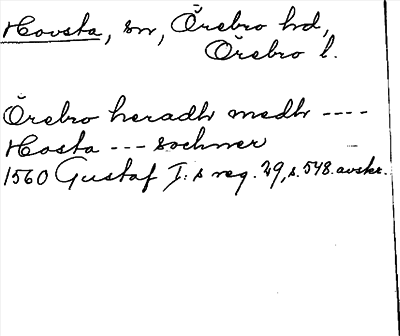 Hovsta, sn, Örebro hd,
Örebro l.
Örebro heradh medh ----
Hosta --- sochner
1560 Gustaf I:s reg. 29, s. 548. avskr.